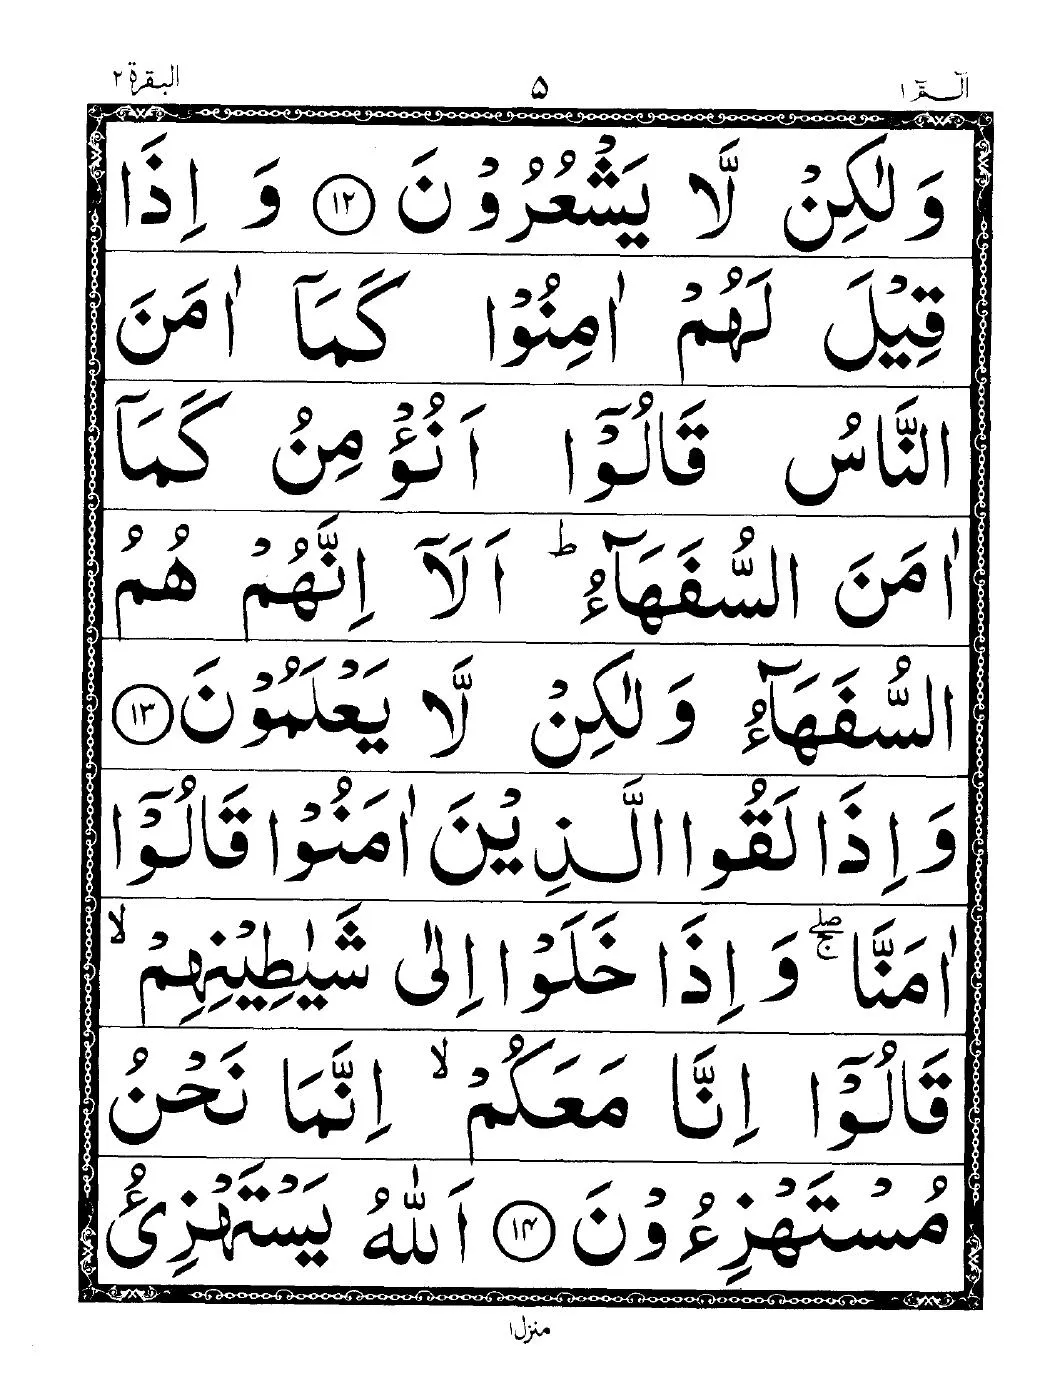 الٓـمّٓ ١
۵
البقرة ٢
وَلٰكِنْ لَّا يَشْعُرُوْنَ ١٢ وَ اِذَا
قِيْلَ لَهُمْ اٰمِنُوْا كَمَاۤ اٰمَنَ
النَّاسُ قَالُوْۤا اَنُؤْمِنُ كَمَاۤ
اٰمَنَ السُّفَهَآءُ ؕ اَلَاۤ اِنَّهُمْ هُمُ
السُّفَهَآءُ وَلٰكِنْ لَّا يَعْلَمُوْنَ ١٣
وَ اِذَا لَقُوا الَّذِيْنَ اٰمَنُوْا قَالُوْۤا
اٰمَنَّا ۖۚ وَ اِذَا خَلَوْا اِلٰى شَيٰطِيْنِهِمْ ۙ
قَالُوْۤا اِنَّا مَعَكُمْ ۙ اِنَّمَا نَحْنُ
مُسْتَهْزِءُوْنَ ١۴ اَللّٰهُ يَسْتَهْزِئُ
منزل ١